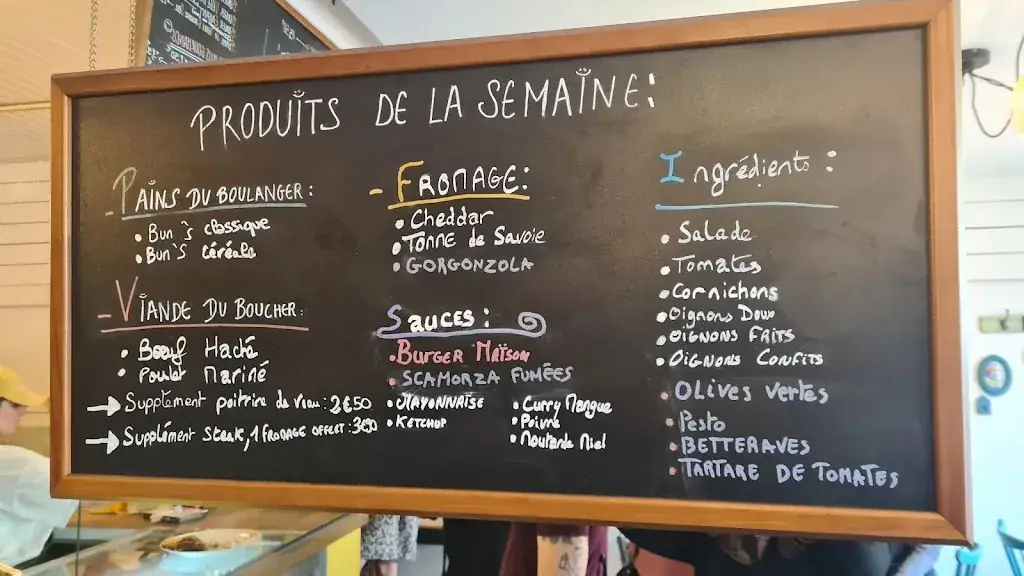 PRODUITS DE LA SEMAINE:
- PAINS DU BOULANGER:
• Bun's classique
• Bun's céréale
- VIANDE DU BOUCHER:
• Boeuf Haché
• Poulet Mariné
→ Supplément poitrine de veau: 2€50
→ Supplément Steak, 1 FROMAGE OFFERT: 3€50
- FROMAGE:
• Cheddar
• TOMME de SAVOIE
• GORGONZOLA
SAUCES:
• BURGER MAISON
• SCAMORZA FUMÉES
• MAYONNAISE
• KETCHUP
• Curry Mangue
• Poivre
• Moutarde Miel
Ingrédients:
• Salade
• Tomates
• Cornichons
• Oignons Doux
• OIGNONS FRITS
• OIGNONS CONFITS
• OLIVES VERTES
• Pesto
• BETTERAVES
• TARTARE DE TOMATES